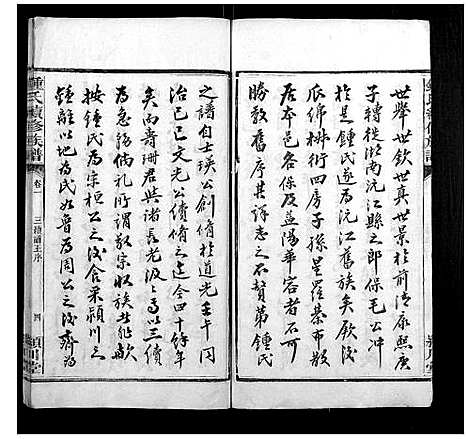 世舉世欽世真世景於前清康熙庚
子轉徙湖南沅江縣之郎保毛公冲
於是鍾氏遂為沅江舊族矣厥後
瓜綿椒衍四房子孫星羅棊布散
居本邑各保及益陽華容者不可
勝數君其詳志之不贅第鍾氏
之譜自士瑛公創脩於道光壬午同
治己巳文光公續脩之迄今四十餘年
矣而壽珊君與諸長光汲汲焉以三續
為急務俑禮所謂敬宗收族者非歟
按鍾氏為宗桓公之後食采潁川
鍾離以地為氏如魯為周公之後齊為
鍾氏續修族譜
卷一
三續譜王序
四
潁川堂